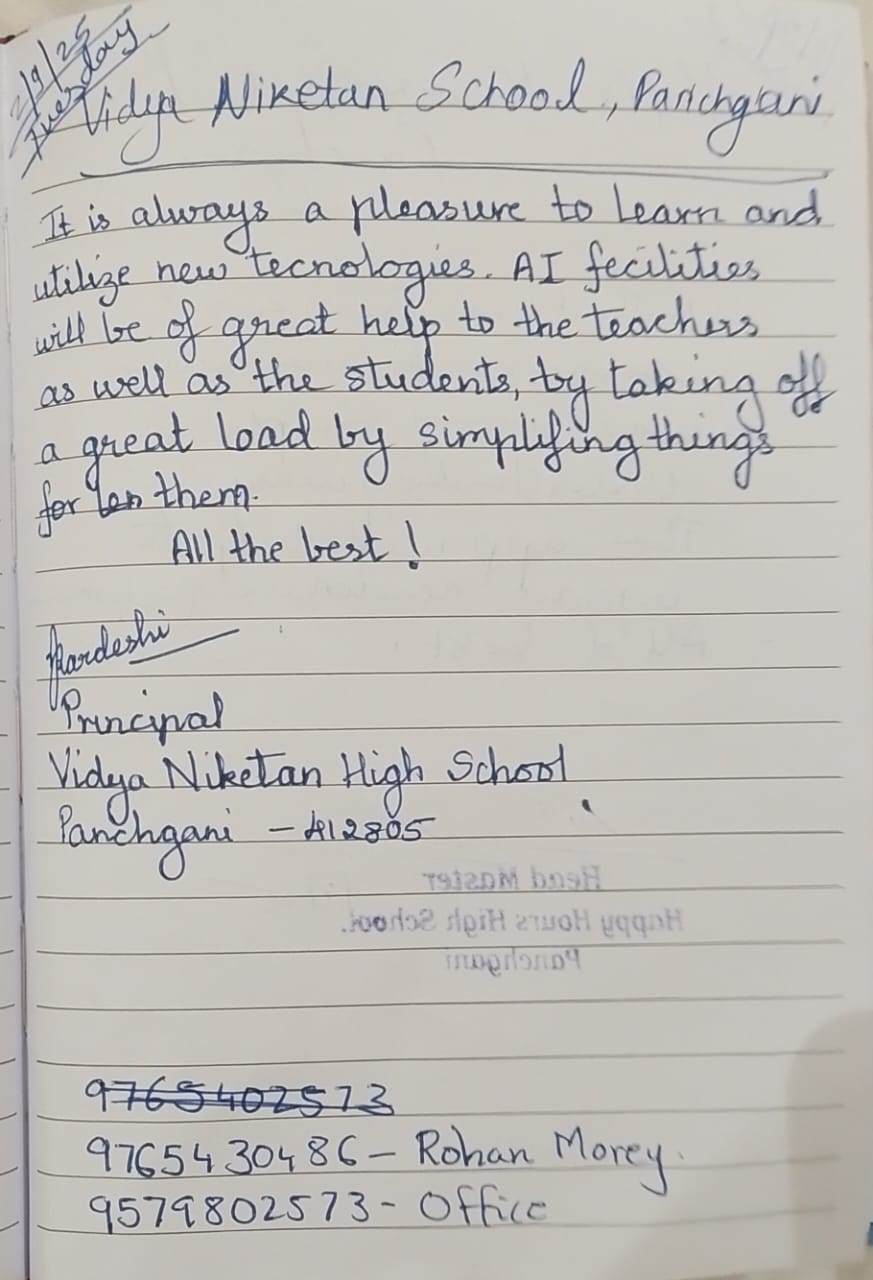 2/9/25
Tuesday
Vidya Niketan School, Panchgani
It is always a pleasure to learn and
utilize new tecnologies. AI fecilities
will be of great help to the teachers
as well as the students, by taking off
a great load by simplifing things
for them.
All the best !
Pardeshi
Principal
Vidya Niketan High School
Panchgani - 412805
Head Master
Happy Hours High School.
Panchgani
9765402573
9765430486 - Rohan Morey.
9579802573 - Office